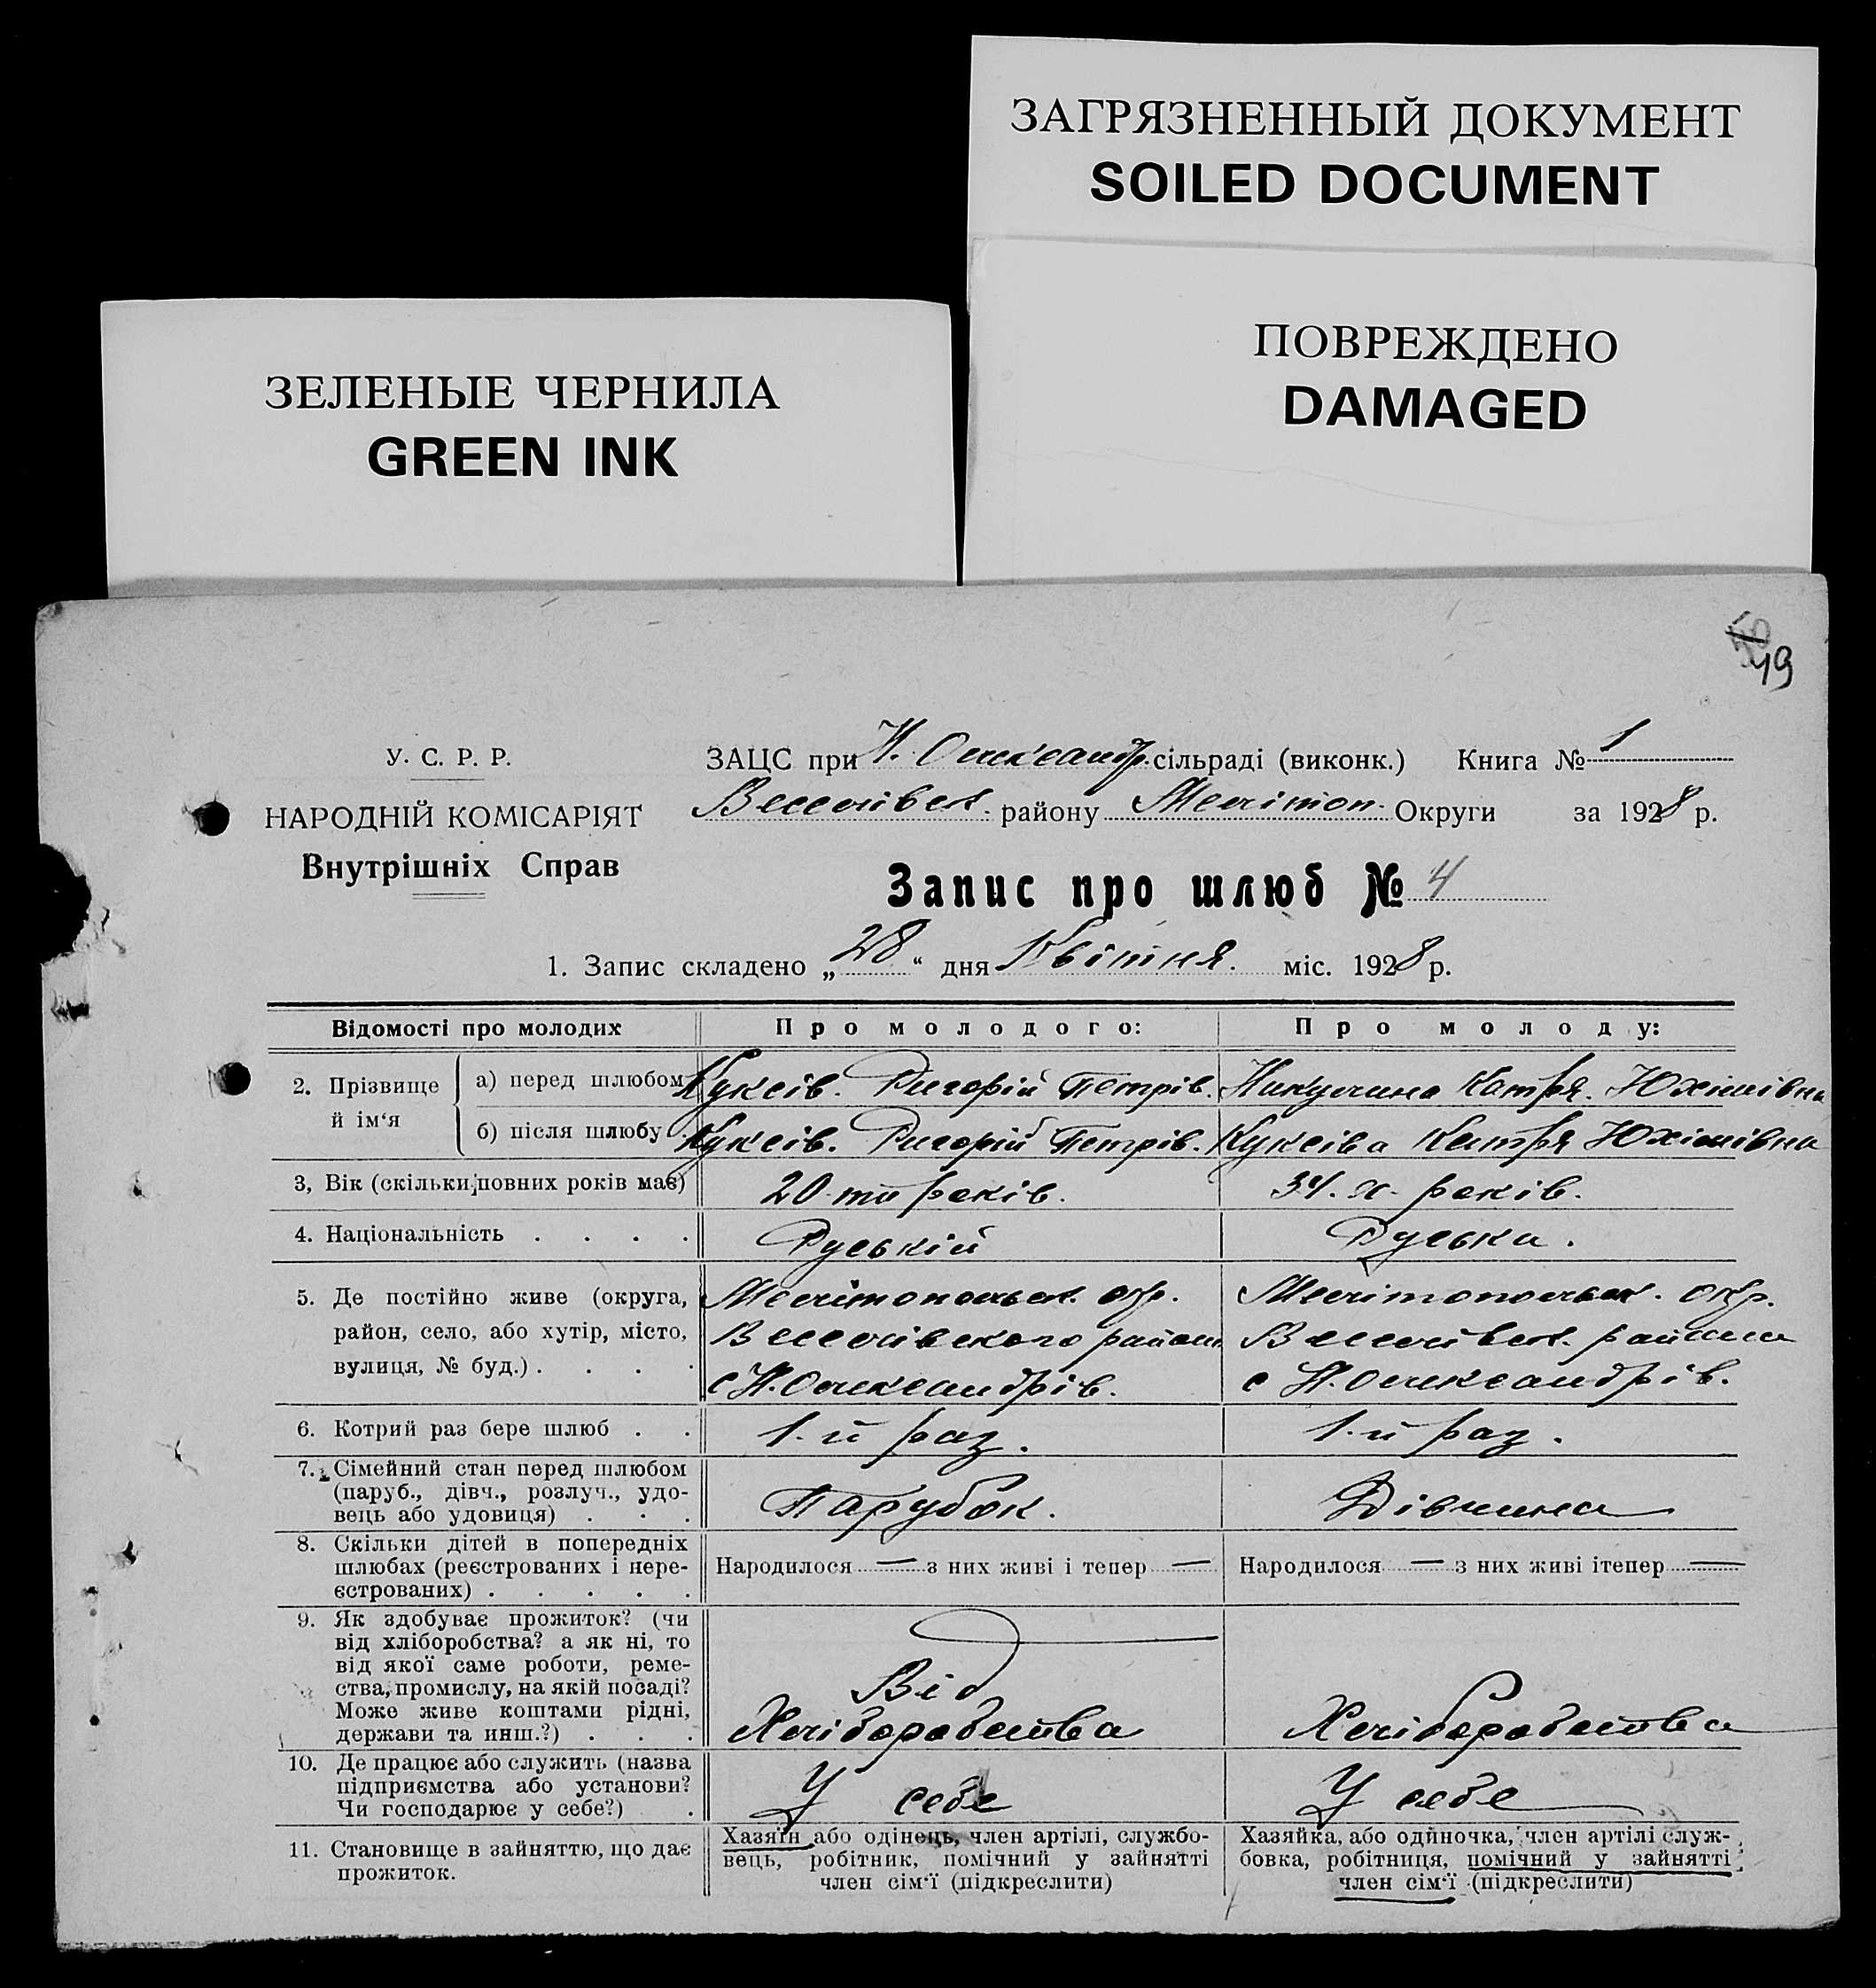 ЗАГРЯЗНЕННЫЙ ДОКУМЕНТ
SOILED DOCUMENT
ПОВРЕЖДЕНО
DAMAGED
ЗЕЛЕНЫЕ ЧЕРНИЛА
GREEN INK
49
У. С. Р. Р.
НАРОДНІЙ КОМІСАРІЯТ
Внутрішніх Справ
ЗАЦС при Н. Олександр. сільраді (виконк.) Книга № 1
Веселівск. району Мелітоп. Округи за 1928 р.
Запис про шлюб № 4
1. Запис складено „28“ дня Квітня. міс. 1928 р.
Відомості про молодих Про молодого: Про молоду:
2. Прізвище й ім‘я
а) перед шлюбом Куксів. Ригорій Петрів. Никулина Катря. Юхимівна
б) після шлюбу Куксів. Ригорій Петрів. Куксіва Катря Юхимівна
3, Вік (скільки повних років має) 20-ти років. 34.х. років.
4. Національність . . . . Руській Руська.
5. Де постійно живе (округа, район, село, або хутір, місто, вулиця, № буд.) . . . .
Мелітопольск. окр.
Веселівского району
с Н. Олександрів.
Мелітопольск. окр.
Веселівск. району
с Н. Олександрів.
6. Котрий раз бере шлюб . . 1-й раз. 1-й раз.
7. Сімейний стан перед шлюбом
(паруб., дівч., розлуч., удо-
вець або удовиця) . . . Парубок. Дівчина
8. Скільки дітей в попередніх
шлюбах (реєстрованих і нере-
єстрованих) . . . . .
Народилося — з них живі і тепер —
Народилося — з них живі ітепер —
9. Як здобуває прожиток? (чи
від хліборобства? а як ні, то
від якої саме роботи, реме-
ства, промислу, на якій посаді?
Може живе коштами рідні,
держави та инш.?) . . .
Від
Хліборобства
Хліборобства
10. Де працює або служить (назва
підприємства або установи?
Чи господарює у себе?) .
У себе
У себе
11. Становище в зайняттю, що дає
прожиток.
Хазяїн або одінець, член артілі, службо-
вець, робітник, помічний у зайнятті
член сім‘ї (підкреслити)
Хазяйка, або одиночка, член артілі служ-
бовка, робітниця, помічний у зайнятті
член сім‘ї (підкреслити)